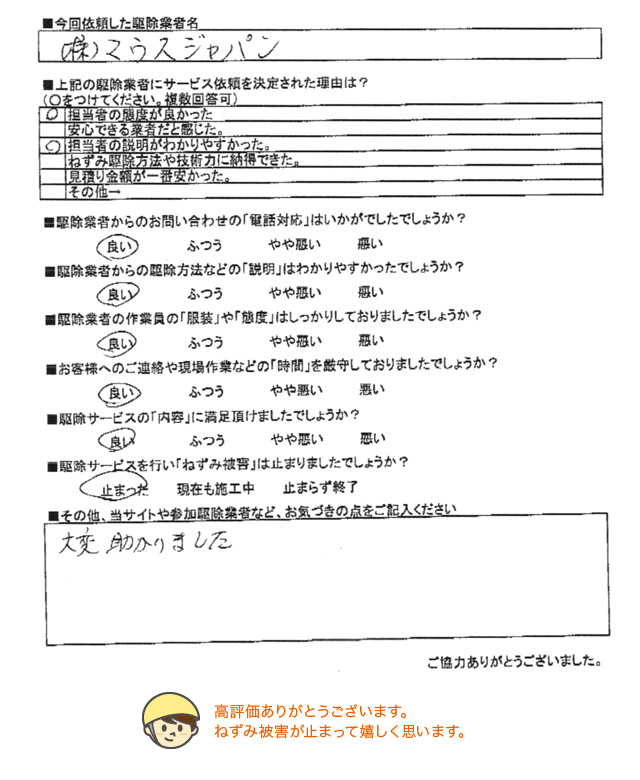 ■今回依頼した駆除業者名
(株)マウスジャパン
■上記の駆除業者にサービス依頼を決定された理由は？
（〇をつけてください。複数回答可）
〇 担当者の態度が良かった
安心できる業者だと感じた。
〇 担当者の説明がわかりやすかった。
ねずみ駆除方法や技術力に納得できた。
見積り金額が一番安かった。
その他→
■駆除業者からのお問い合わせの「電話対応」はいかがでしたでしょうか？
良い ふつう やや悪い 悪い
■駆除業者からの駆除方法などの「説明」はわかりやすかったでしょうか？
良い ふつう やや悪い 悪い
■駆除業者の作業員の「服装」や「態度」はしっかりしておりましたでしょうか？
良い ふつう やや悪い 悪い
■お客様へのご連絡や現場作業などの「時間」を厳守しておりましたでしょうか？
良い ふつう やや悪い 悪い
■駆除サービスの「内容」に満足頂けましたでしょうか？
良い ふつう やや悪い 悪い
■駆除サービスを行い「ねずみ被害」は止まりましたでしょうか？
止まった 現在も施工中 止まらず終了
■その他、当サイトや参加駆除業者など、お気づきの点をご記入ください
大変助かりました
ご協力ありがとうございました。
高評価ありがとうございます。
ねずみ被害が止まって嬉しく思います。